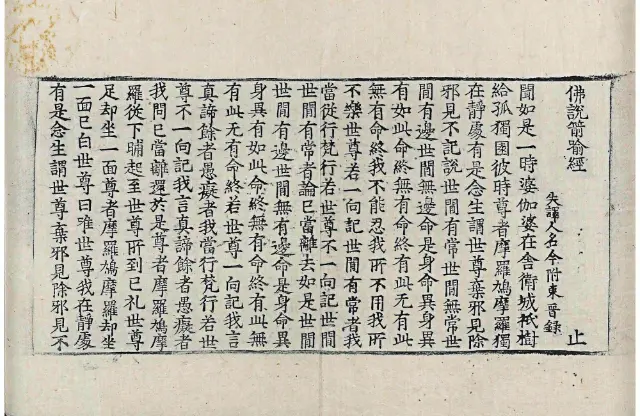 佛說箭喻經
失譯人名今附東晉錄 止
聞如是一時婆伽婆在舍衛城祇樹
給孤獨園彼時尊者摩羅鳩摩羅獨
在靜處有是念生謂世尊棄邪見除
邪見不記說世間有常世間無常世
間有邊世間無邊命是身命異身異
有如此命終無有命終有此無有此
無有命終我不能忍我所不用我所
不樂世尊若一向記世間有常者我
當從行梵行若世尊不一向記世間
世間有常者論已當離去如是世間
世間有邊世間無有邊命是身命異
身異有如此命終無有命終有此無
有此无有命終若世尊一向記我言
真諦餘者愚癡者我當行梵行若世
尊不一向記我言真諦餘者愚癡者
我問已當離還於是尊者摩羅鳩摩
羅從下晡起至世尊所到已礼世尊
足却坐一面尊者摩羅鳩摩羅却坐
一面已白世尊曰唯世尊我在靜處
有是念生謂世尊棄邪見除邪見不